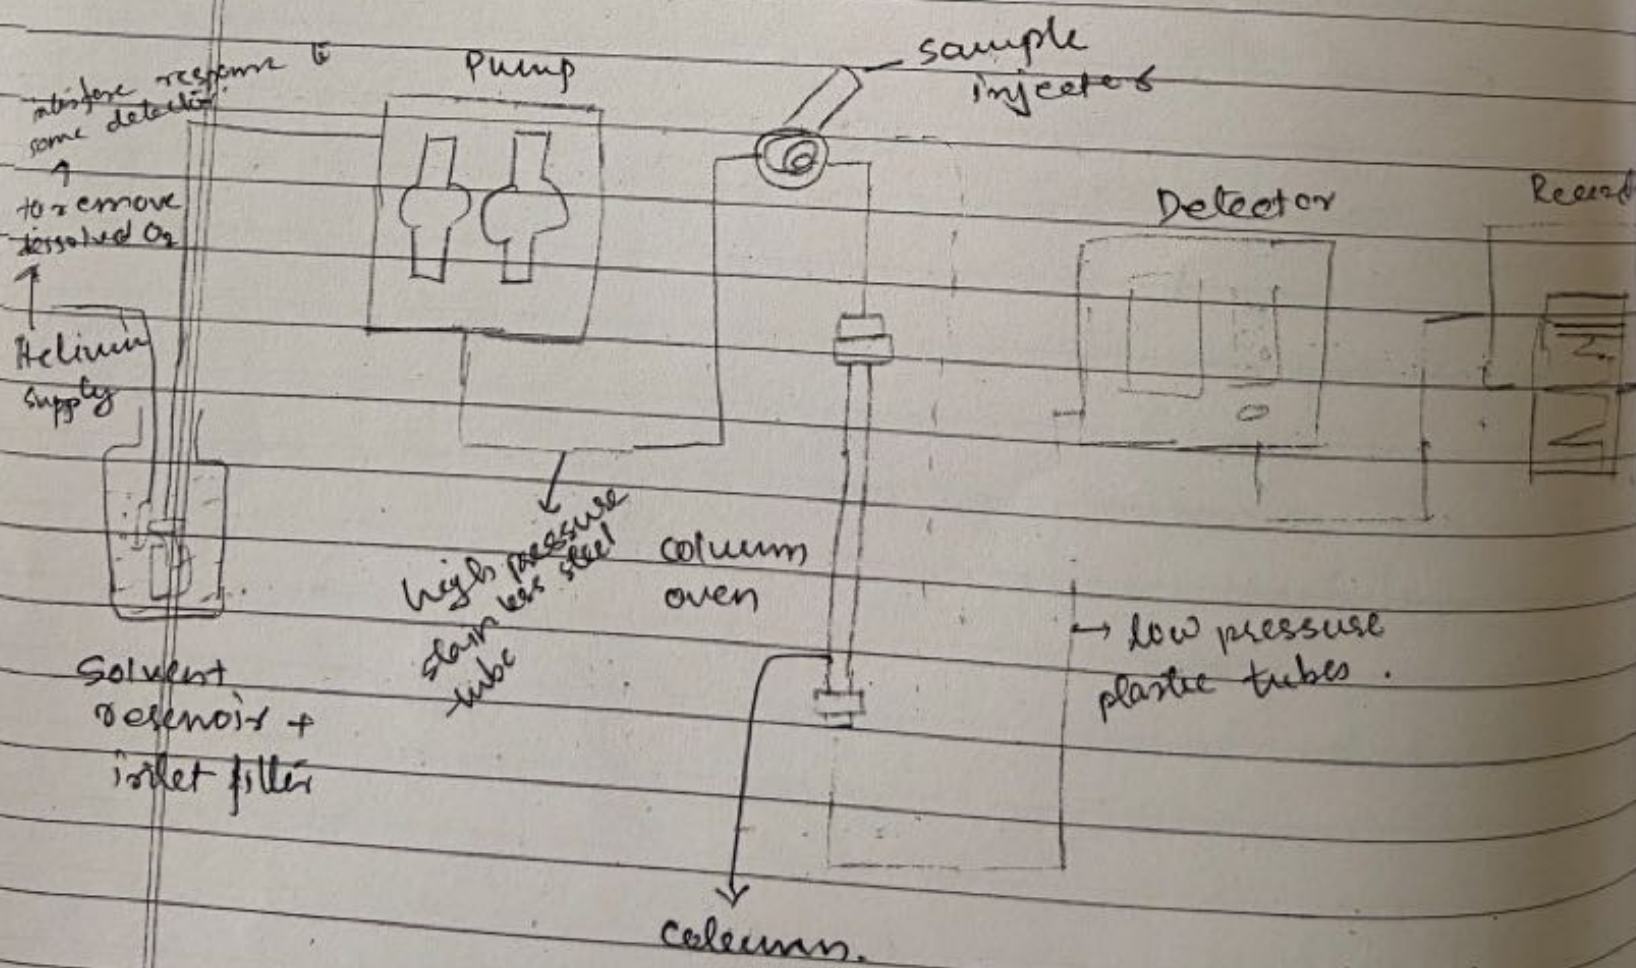 interfere response to
some detector
to remove
dissolved O2
Helium
supply
Pump
sample
injector
Detector
Record
high pressure
stain less steel
tube
column
oven
→ low pressure
plastic tubes.
Solvent
reservoir +
inlet filter
Column.